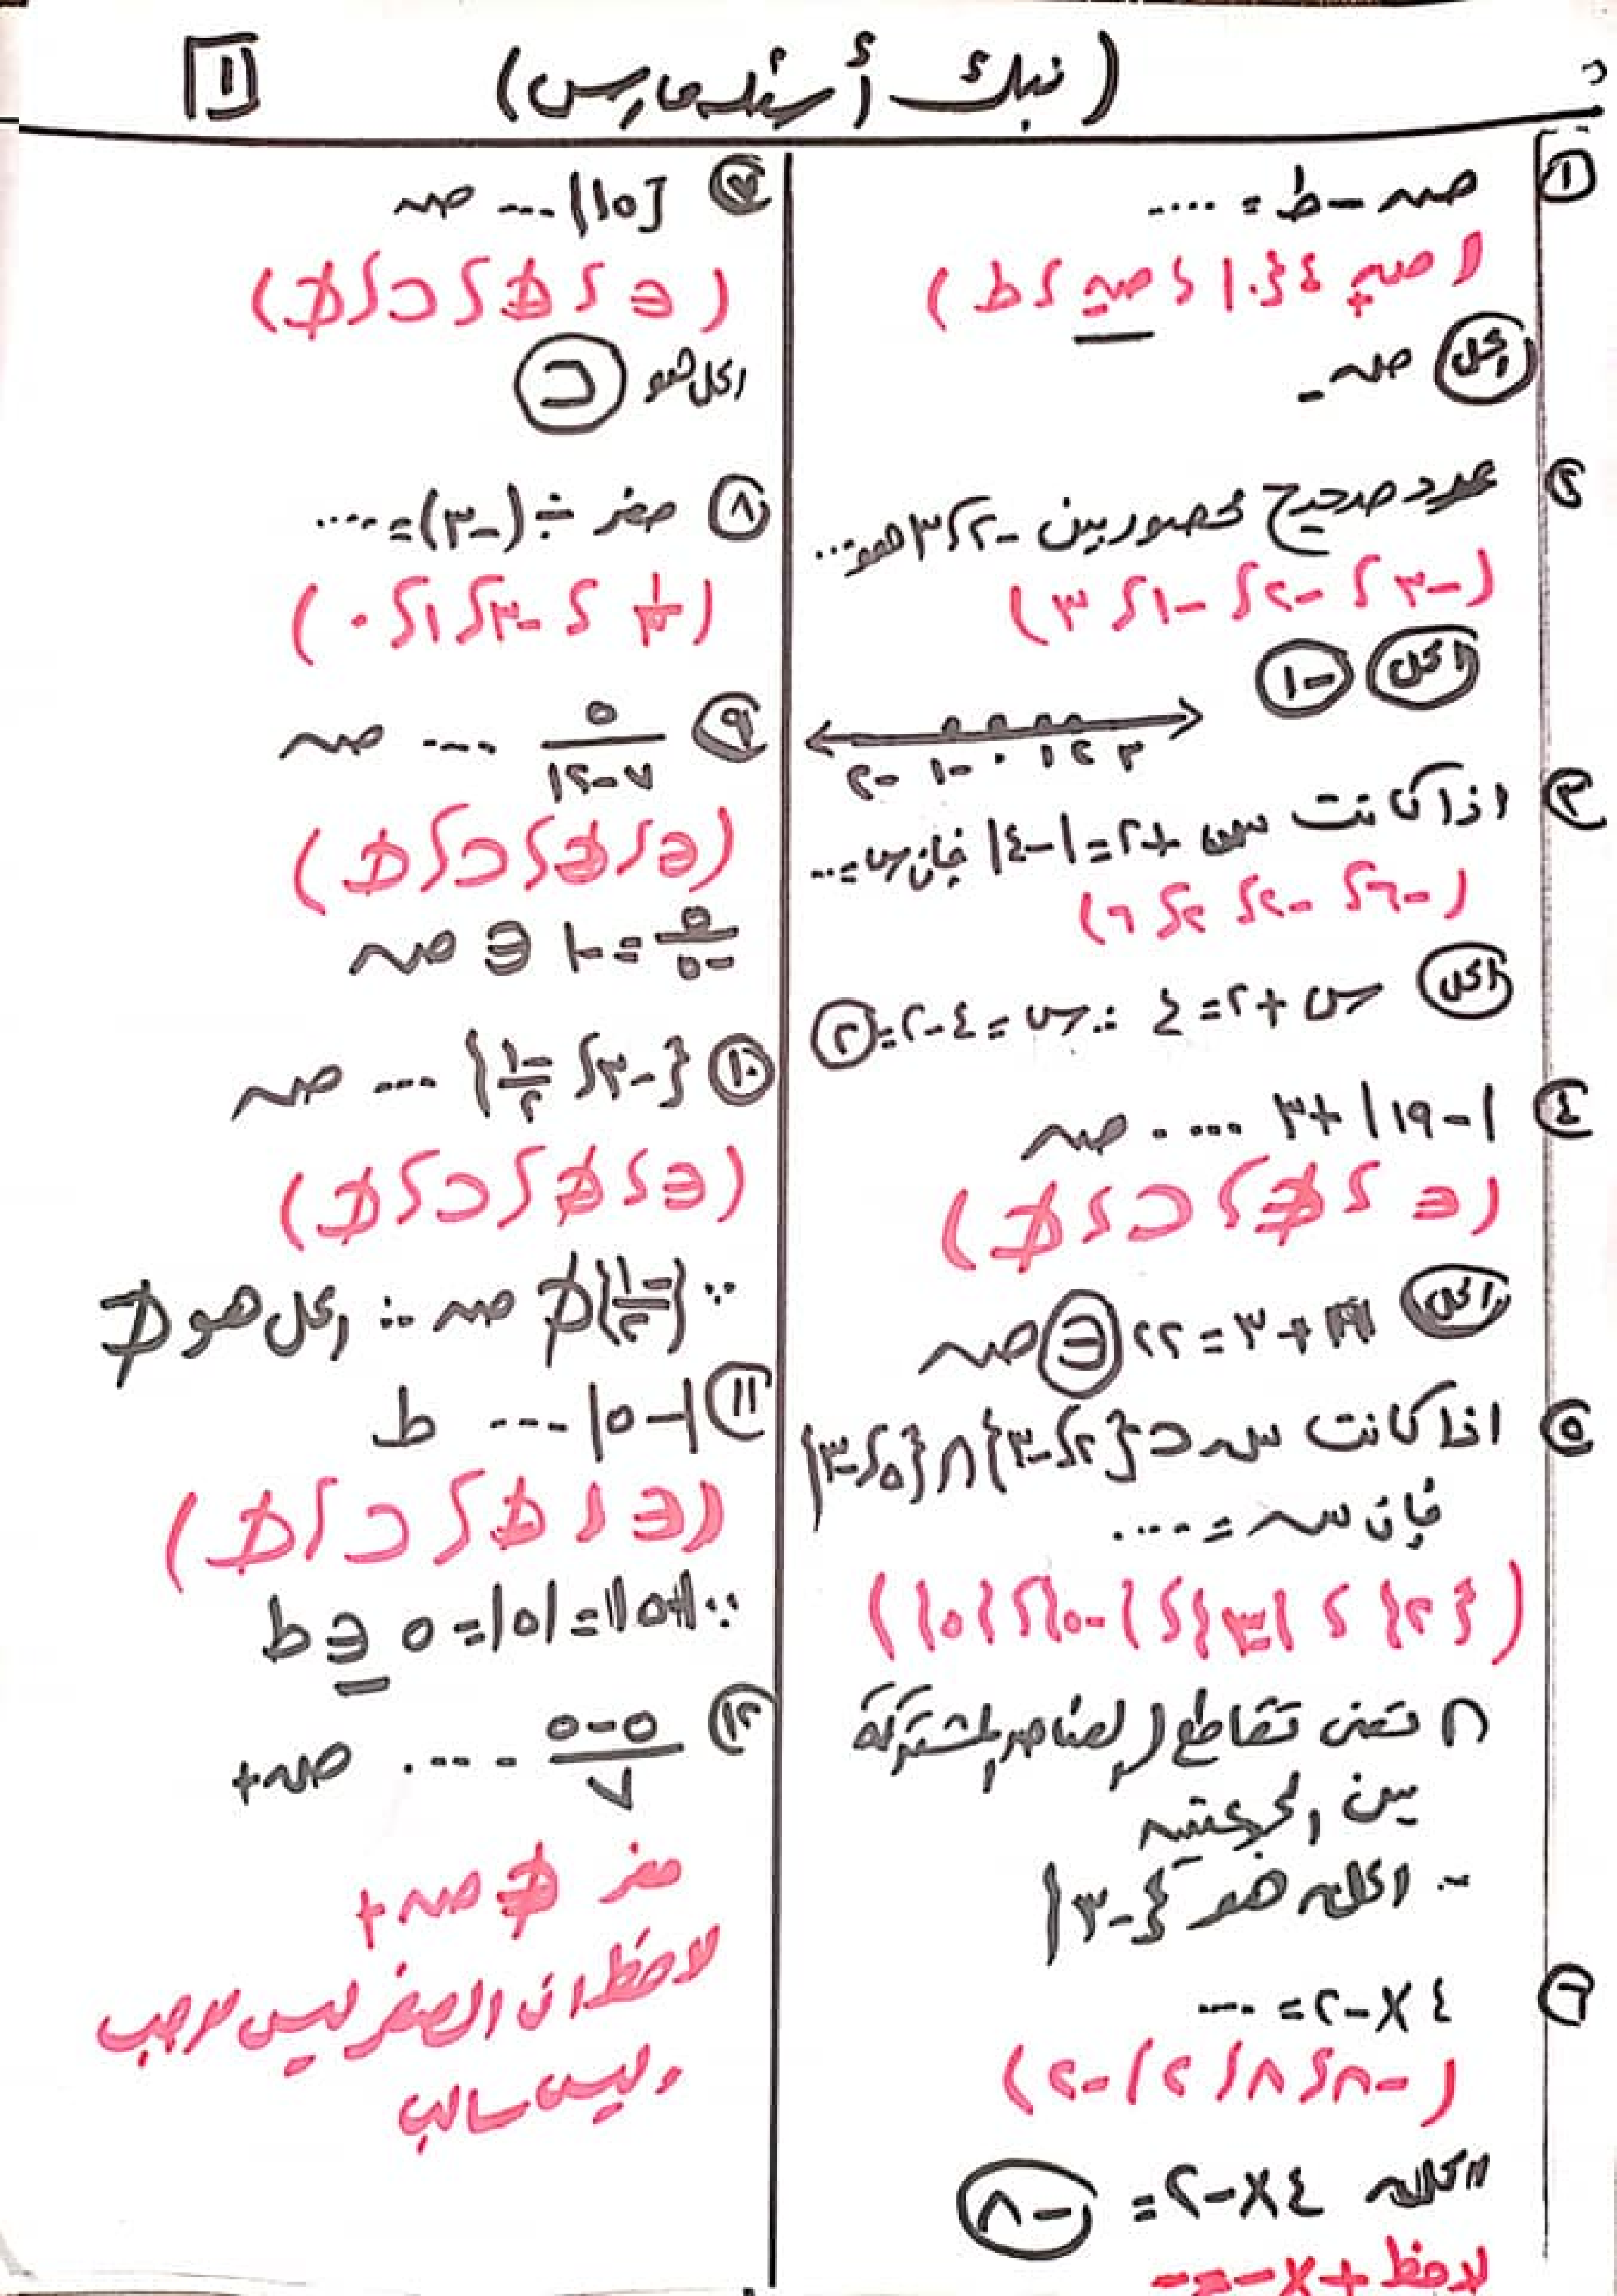 (بنك أسئلة مارس) ١
① صـ - ط = ....
(صـ+ ، {٠} ، صـ- ، ط)
الحل صـ-
② عدد صحيح محصور بين -٢ ، ٣ هو ...
(-٣ ، -٢ ، -١ ، ٣)
الحل -١
-٢ -١ ٠ ١ ٢ ٣
③ اذا كانت س + ٢ = |-٤| فإن س = ...
(-٦ ، -٢ ، ٢ ، ٦)
الحل س + ٢ = ٤ ∴ س = ٤ - ٢ = ٢
④ |-١٩| + ٣ .... صـ
(∈ ، ∉ ، ⊂ ، ⊄)
الحل ١٩ + ٣ = ٢٢ ∈ صـ
⑤ اذا كانت سـ = {٢ ، -٣} ∩ {٥ ، -٣}
فإن سـ = ....
({٢} ، {-٣} ، {-٥} ، {٥})
∩ تعنى تقاطع (العناصر المشتركة
بين المجموعتين
∴ الحل هو {-٣}
⑥ ٤ × -٢ = ....
(-٨ ، ٨ ، ٢ ، -٢)
الحل ٤ × -٢ = -٨
لاحظ + × - = -
⑦ {٥} ... صـ
(∈ ، ∉ ، ⊂ ، ⊄)
الحل هو ⊂
⑧ صفر ÷ (-٣) = ....
( ، -٣ ، ١ ، ٠)
⑨ ٥/(٧-١٢) .... صـ
(∈ ، ∉ ، ⊂ ، ⊄)
٥/-٥ = -١ ∈ صـ
⑩ {-٣ ، -١/٢} .... صـ
(∈ ، ∉ ، ⊂ ، ⊄)
∵ {-١/٢} ⊄ صـ ∴ الحل هو ⊄
⑪ |-٥| .... ط
(∈ ، ∉ ، ⊂ ، ⊄)
∵ |-٥| = |٥| = ٥ ∈ ط
⑫ (٥-٥)/٧ .... صـ+
صفر ∉ صـ+
لاحظ ان الصفر ليس موجب
وليس سالب